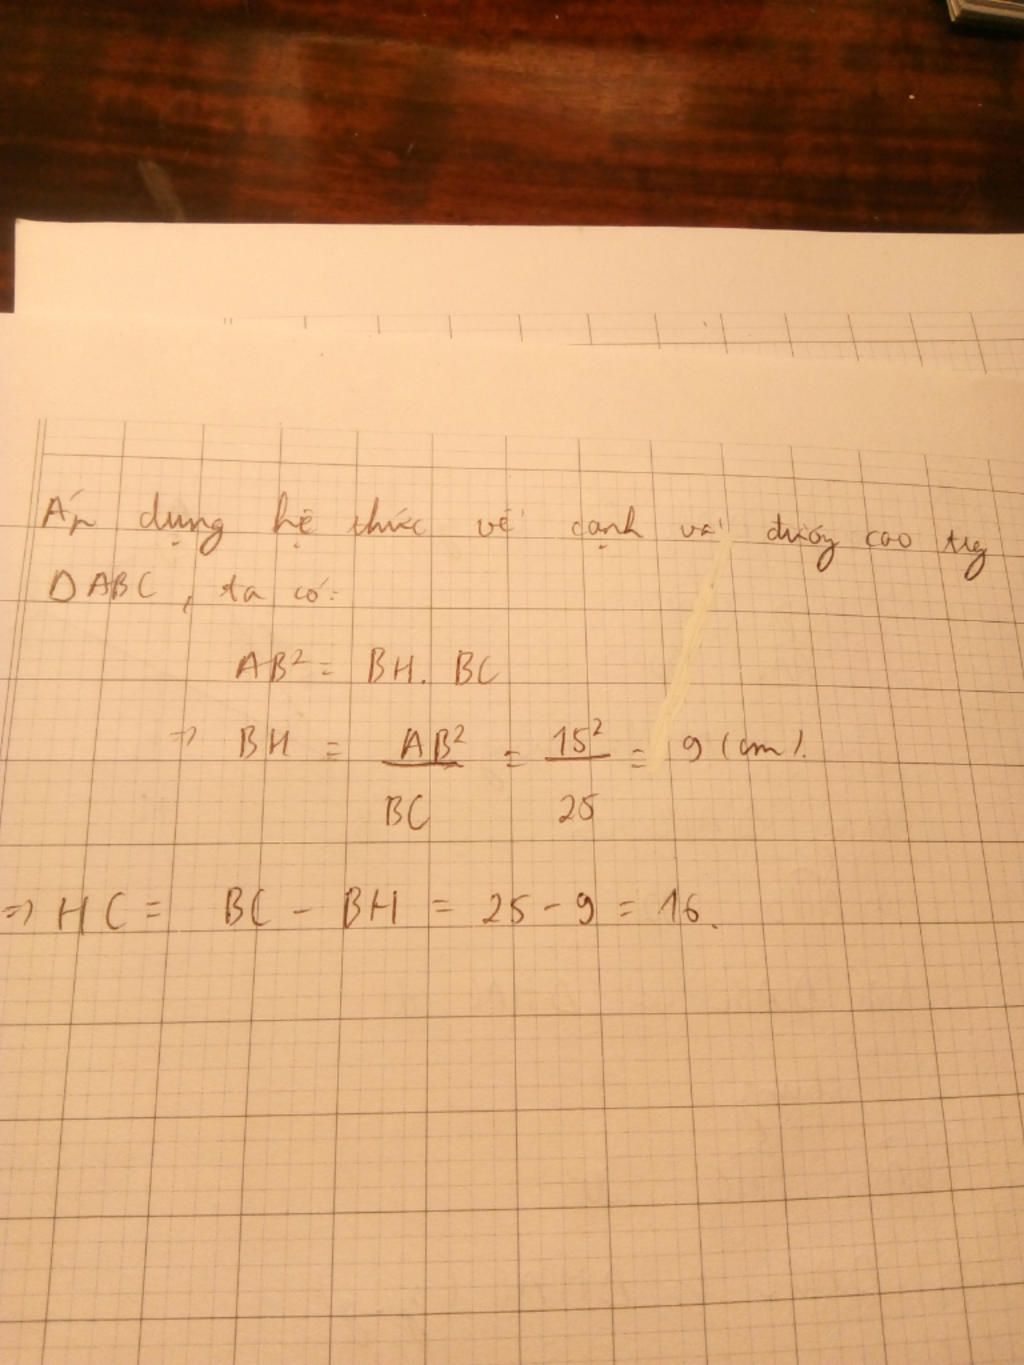 Áp dụng hệ thức về cạnh và đường cao trg
ΔABC, ta có:
AB² = BH. BC
⇒ BH = AB²/BC = 15²/25 = 9 (cm).
⇒ HC = BC - BH = 25 - 9 = 16.